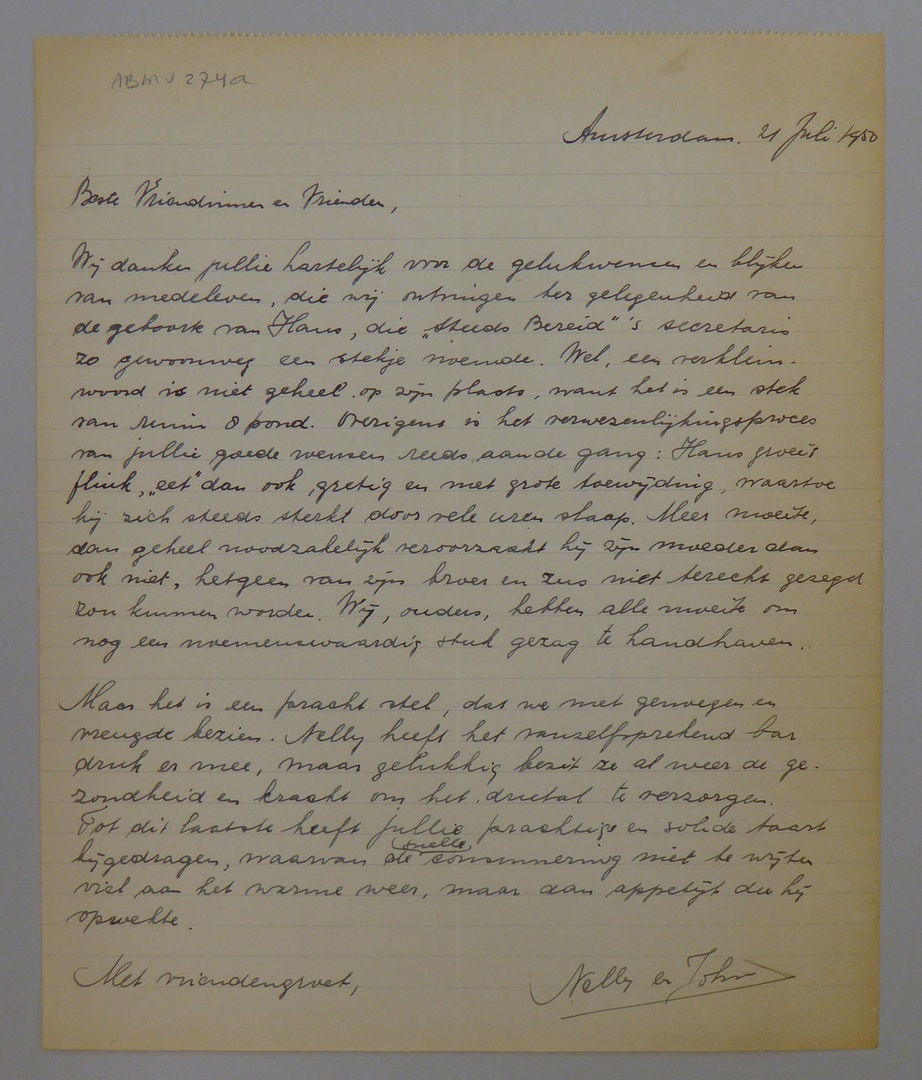 ABMV 274a
Amsterdam, 21 Juli 1950
Beste Vriendinnen en Vrienden,
Wij danken jullie hartelijk voor de gelukwensen en blijken
van medeleven, die wij ontvingen ter gelegenheid van
de geboorte van Hans, die „Steeds Bereid"'s secretaris
zo gewoonweg een stekje noemde. Wel, een verklein-
woord is niet geheel op zijn plaats, want het is een stek
van ruim 8 pond. Overigens is het verwezenlijkingsproces
van jullie goede wensen reeds aan de gang: Hans groeit
flink, „eet" dan ook gretig en met grote toewijding, waartoe
hij zich steeds sterkt door vele uren slaap. Meer moeite,
dan geheel noodzakelijk veroorzaakt hij zijn moeder dan
ook niet, hetgeen van zijn broer en zus niet terecht gezegd
zou kunnen worden. Wij, ouders, hebben alle moeite om
nog een noemenswaardig stuk gezag te handhaven..
Maar het is een pracht stel, dat we met genoegen en
vreugde bezien. Nelly heeft het vanzelfsprekend bar
druk er mee, maar gelukkig bezit ze al weer de ge-
zondheid en kracht om het drietal te verzorgen.
Tot dit laatste heeft jullie prachtige en solide taart
bijgedragen, waarvan de snelle consumering niet te wijten
viel aan het warme weer, maar aan appetijt die hij
opwekte.
Met vriendengroet,
Nelly en John